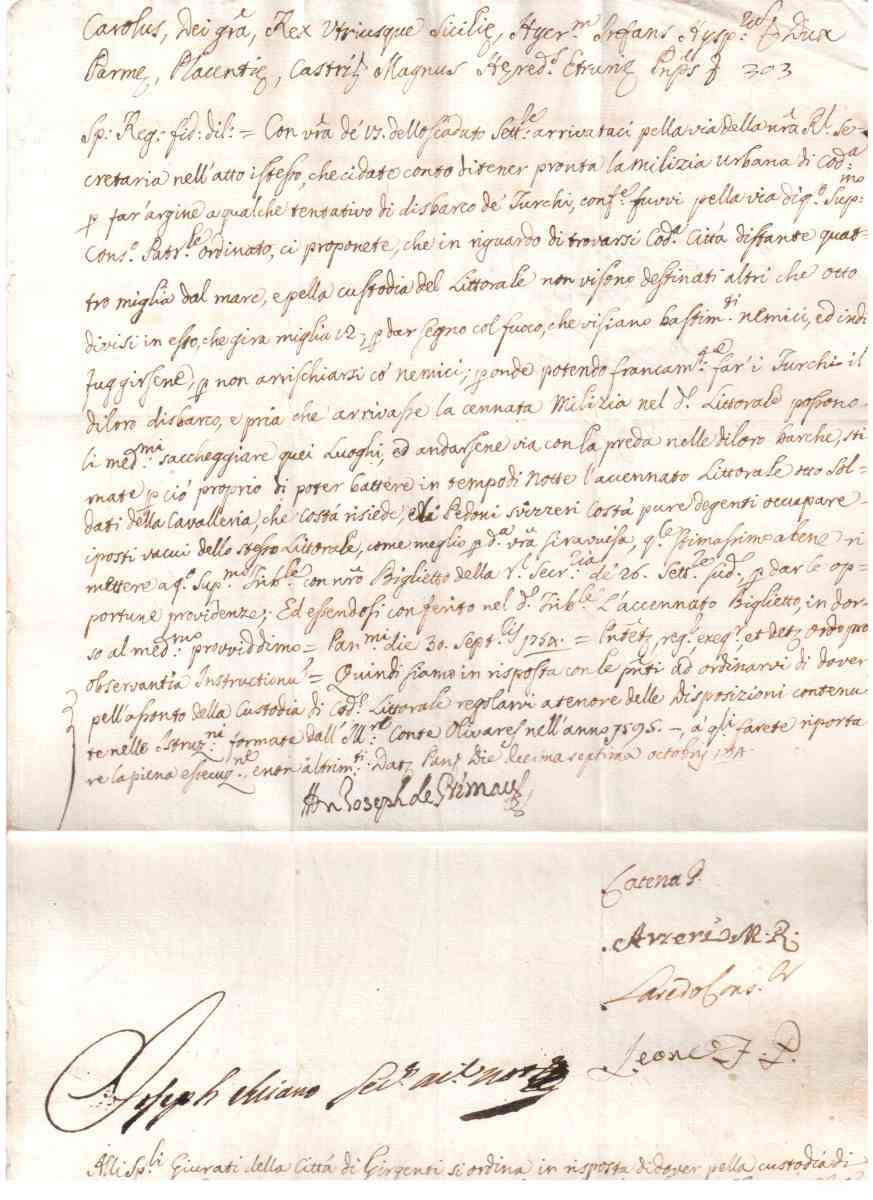 Carolus, Dei grã, Rex Utriusque Sicilię, Hyer.m Infans Hysp. Dux
Parmę, Placentię, Castri, Magnus Hęred.s Etrurię Pnps 303
Sp: Reg: fid: dil: = Con vrã de' 17. dello scaduto Sett.e arrivataci pella via della nrã Rl. Se-
cretaria nell'atto istesso, che ci date conto di tener pronta la Milizia Urbana di Cod.a
p far'argine a qualche tentativo di disbarco de' Turchi, conf.e fuvvi pella via di q.o Sup:mo
Cons.o Patr.le ordinato, ci proponete, che in riguardo di trovarsi Cod.a Città distante quat=
tro miglia dal mare, e pella custodia del Littorale non vi sono destinati altri che otto
divisi in esso, che gira miglia 12, p dar segno col fuoco, che vi siano bastim.ti nemici, ed indi
fuggirsene, p non arrischiarsi co' nemici; p onde potendo francam.te far' i Turchi il
di loro disbarco, e pria che arrivasse la cennata Milizia nel d.o Littorale possono
li med.mi saccheggiare quei Luoghi, ed andarsene via con la preda nelle di loro barche, sti
mate p ciò proprio di poter battere in tempo di Notte l'accennato Littorale otto Sol=
dati della Cavalleria, che costà risiede, e li Pedoni svizzeri Costà pure degenti occupare
i posti vacui dello stesso Littorale, come meglio p d.a vrã si ravvisa, q.le stimassimo a bene ri
mettere a q.o Sup.mo Trib.le con nrõ Biglietto della r.l Secr.ria de' 26. Sett.e sud.o p dar le op=
portune providenze; Ed essendosi conferito nel d.o Trib.le L'accennato Biglietto, in dor-
so al med.mo provviddimo = Pan.mi die 30. Sept.is 1754. = Pntet, reg.r exeq.r et detz Ordo pro
observantia Instructionu = Quindi siamo in risposta con le pnti ad ordinarvi di dover
pell'afronto della Custodia di Cod.o Littorale regolarvi a tenore delle Disposizioni contenu
te nelle Istruz.ni formate dall' Ill.re Conte Olivares nell'anno 1595. -, a' q.li farete riporta
re la piena essecuz.ne, e non altrim.ti Dat. Pan. Die decima septima octobris 1754
Joseph de Grimau
Catena P.
Arzeri M. R.
Laredo Cons.r
Leone F. P.
Joseph Miano
Alli Sp.li Giurati della Città di Girgenti si ordina in risposta di dover pella custodia di